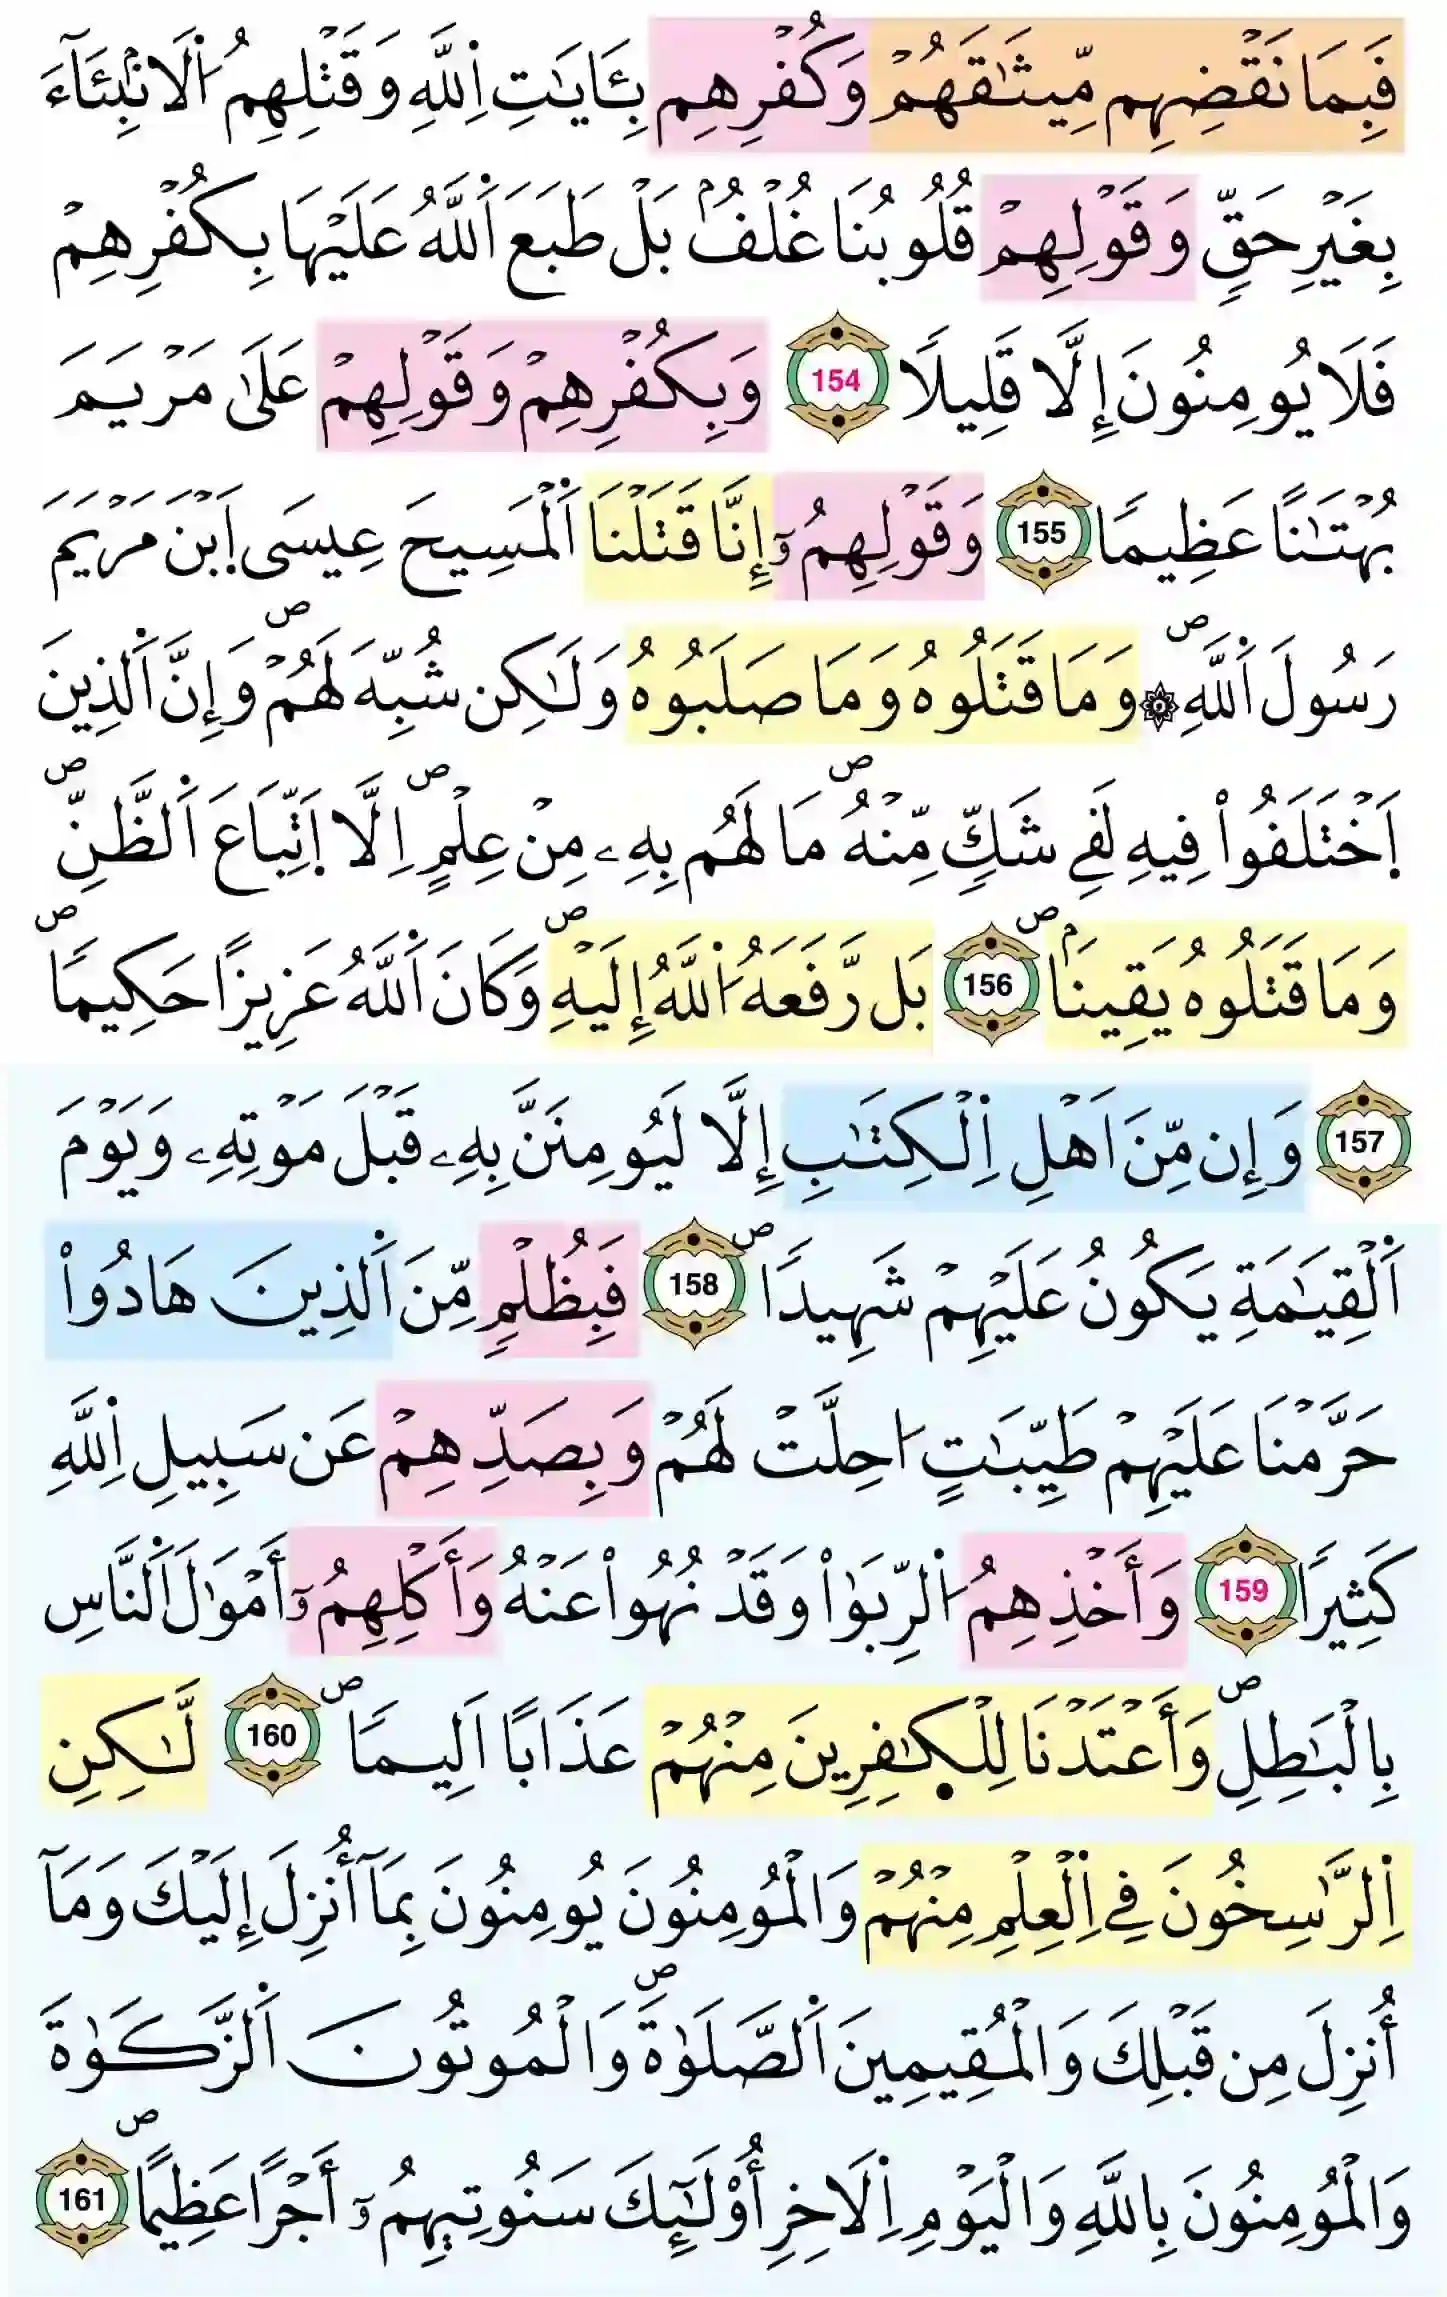 فَبِمَا نَقْضِهِم مِّيثَٰقَهُمْ وَكُفْرِهِم بِـَٔايَٰتِ اِ۬للَّهِ وَقَتْلِهِمُ اُ۬لَانۢبِئَآءَ
بِغَيْرِ حَقّٖ وَقَوْلِهِمْ قُلُوبُنَا غُلْفُۢ بَلْ طَبَعَ اَ۬للَّهُ عَلَيْهَا بِكُفْرِهِمْ
فَلَا يُومِنُونَ إِلَّا قَلِيلٗا 154 وَبِكُفْرِهِمْ وَقَوْلِهِمْ عَلَىٰ مَرْيَمَ
بُهْتَٰنًا عَظِيمٗا 155 وَقَوْلِهِمُۥٓ إِنَّا قَتَلْنَا اَ۬لْمَسِيحَ عِيسَى اَ۪بْنَ مَرْيَمَ
رَسُولَ اَ۬للَّهِۖ ۞ وَمَا قَتَلُوهُ وَمَا صَلَبُوهُ وَلَٰكِن شُبِّهَ لَهُمْۖ وَإِنَّ اَ۬لذِينَ
اَ۪خْتَلَفُواْ فِيهِ لَفِے شَكّٖ مِّنْهُۖ مَا لَهُم بِهِۦ مِنْ عِلْمٍۖ اِلَّا اَ۪تِّبَاعَ اَ۬لظَّنِّۖ
وَمَا قَتَلُوهُ يَقِينَۢاۖ 156 بَل رَّفَعَهُ اُ۬للَّهُ إِلَيْهِۖ وَكَانَ اَ۬للَّهُ عَزِيزًا حَكِيمٗاۖ
157 وَإِن مِّنَ اَهْلِ اِ۬لْكِتَٰبِ إِلَّا لَيُومِنَنَّ بِهِۦ قَبْلَ مَوْتِهِۦ وَيَوْمَ
اَ۬لْقِيَٰمَةِ يَكُونُ عَلَيْهِمْ شَهِيدٗاۖ 158 فَبِظُلْمٖ مِّنَ اَ۬لذِينَ هَادُواْ
حَرَّمْنَا عَلَيْهِمْ طَيِّبَٰتٍ ا۟حِلَّتْ لَهُمْ وَبِصَدِّهِمْ عَن سَبِيلِ اِ۬للَّهِ
كَثِيرٗا 159 وَأَخْذِهِمُ اُ۬لرِّبَوٰاْ وَقَدْ نُهُواْ عَنْهُ وَأَكْلِهِمُۥٓ أَمْوَٰلَ اَ۬لنَّاسِ
بِالْبَٰطِلِۖ وَأَعْتَدْنَا لِلْكٰ۪فِرِينَ مِنْهُمْ عَذَابًا اَلِيمٗاۖ 160 لَّٰكِنِ
اِ۬لرَّٰسِخُونَ فِے اِ۬لْعِلْمِ مِنْهُمْ وَالْمُومِنُونَ يُومِنُونَ بِمَآ أُنزِلَ إِلَيْكَ وَمَآ
أُنزِلَ مِن قَبْلِكَ وَالْمُقِيمِينَ اَ۬لصَّلَوٰةَۖ وَالْمُوتُونَ اَ۬لزَّكَوٰةَ
وَالْمُومِنُونَ بِاللَّهِ وَالْيَوْمِ اِ۬لَاخِرِ أُوْلَٰٓئِكَ سَنُوتِيهِمُۥٓ أَجْرًا عَظِيمًاۖ 161